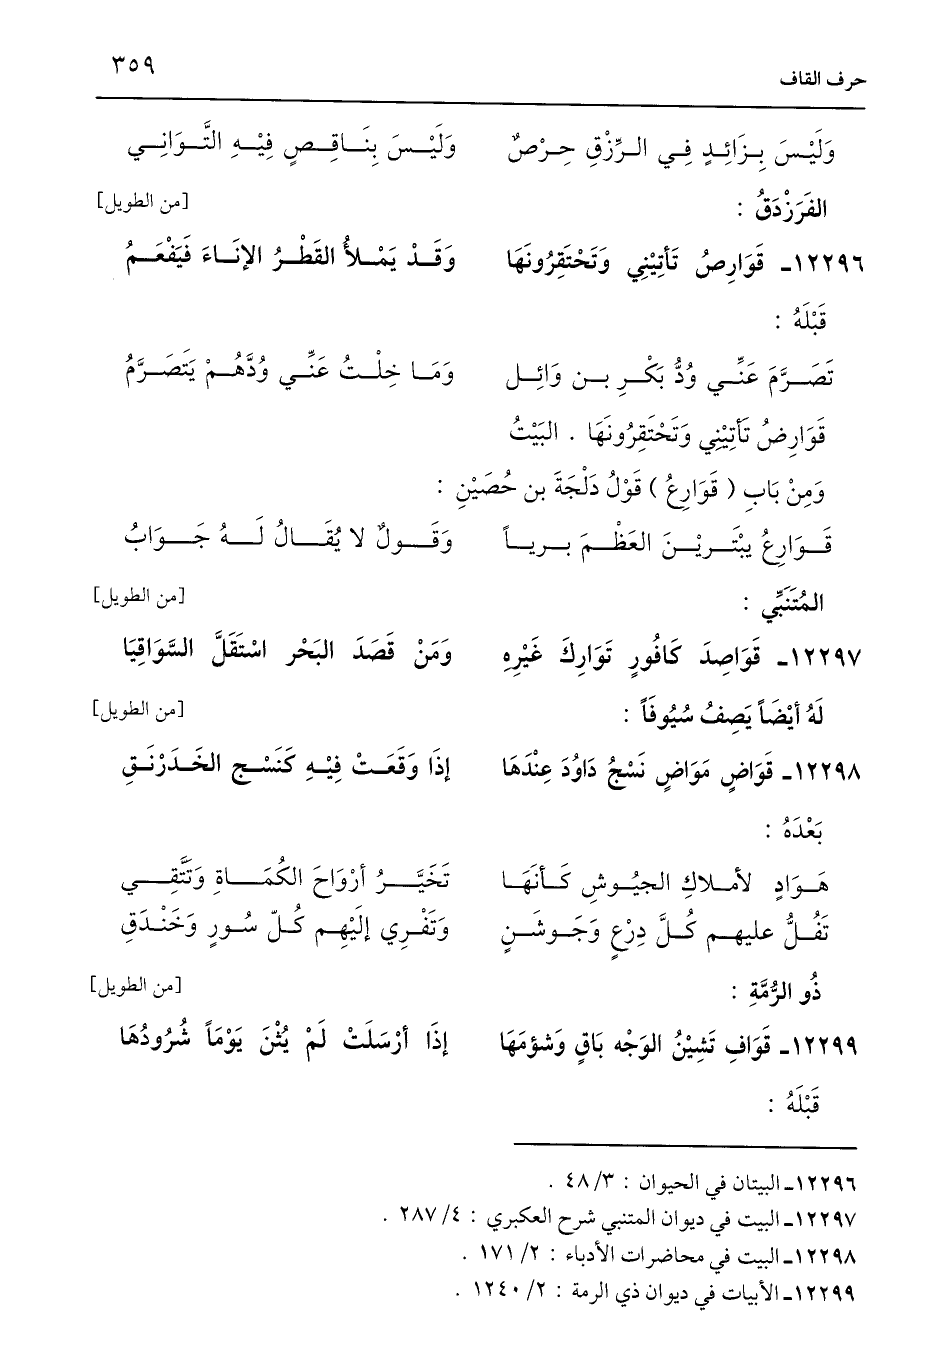 حرف القاف ٣٥٩
وَلَيْسَ بِزَائِدٍ فِي الرِّزْقِ حِرْصٌ وَلَيْسَ بِنَاقِصٍ فِيْهِ التَّوَانِي
الفَرَزْدَقُ : [من الطويل]
١٢٢٩٦ـ قَوَارِصُ تَأتِيْنِي وَتَحْتَقِرُونَهَا وَقَدْ يَمْلأُ القَطْرُ الإنَاءَ فَيَفْعَمُ
قَبْلَهُ :
تَصَرَّمَ عَنِّي وُدُّ بَكْرِ بن وَائِل وَمَا خِلْتُ عَنِّي وُدَّهُمْ يَتَصَرَّمُ
قَوَارِضُ تَأتِيْنِي وَتَحْتَقِرُونَهَا . البَيْتُ
وَمِنْ بَابِ ( قَوَارِعُ ) قَوْلُ دَلْجَةَ بن حُصَيْنِ :
قَوَارِعُ يبْتَرِيْنَ العَظْمَ برياً وَقَولٌ لا يُقَالُ لَهُ جَوَابُ
المُتَنَبِّي : [من الطويل]
١٢٢٩٧ـ قَوَاصِدَ كَافُورٍ تَوَارِكَ غَيْرِهِ وَمَنْ قَصَدَ البَحْر اسْتَقَلَّ السَّوَاقِيَا
لَهُ أيْضَاً يَصِفُ سُيُوفَاً : [من الطويل]
١٢٢٩٨ـ قَوَاضٍ مَوَاضٍ نَسْجُ دَاوُدَ عِنْدَهَا إذَا وَقَعَتْ فِيْهِ كَنَسْجِ الخَدَرْنَقِ
بَعْدَهُ :
هَوَادٍ لأملاكِ الجيُوشِ كَأنَّهَا تَخَيَّرُ أرْوَاحَ الكُمَاةِ وَتَتَّقِي
تَفُلُّ عليهم كُلَّ دِرْعٍ وَجَوشَنٍ وَتَفْرِي إلَيْهِم كُلّ سُورٍ وَخَنْدَقِ
ذُو الرُّمَّةِ : [من الطويل]
١٢٢٩٩ـ قَوَافِ تَشِيْنُ الوَجْه بَاقٍ وَشؤمَهَا إذَا أرْسَلَتْ لَمْ يُثْنَ يَوْمَاً شُرُودُهَا
قَبْلَهُ :
١٢٢٩٦ـ البيتان في الحيوان : ٣/ ٤٨ .
١٢٢٩٧ـ البيت في ديوان المتنبي شرح العكبري : ٤/ ٢٨٧ .
١٢٢٩٨ـ البيت في محاضرات الأدباء : ٢/ ١٧١ .
١٢٢٩٩ـ الأبيات في ديوان ذي الرمة : ٢/ ١٢٤٠ .